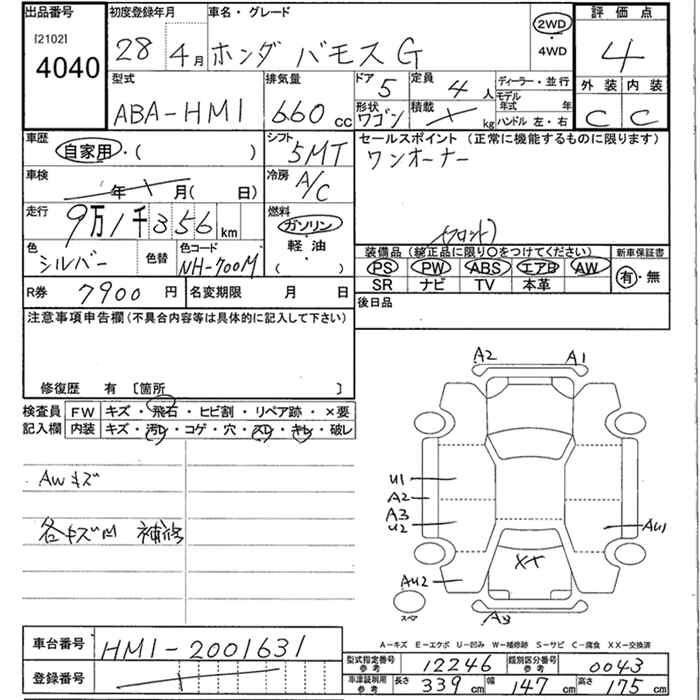 出品番号 初度登録年月 車名・グレード 評価点
[2102] 28年4月 ホンダ バモスG 2WD ・ 4WD 4
4040
型式 排気量 ドア 5 定員 4人 ディーラー・並行 外装 内装
ABA-HM1 660cc 形状 ワゴン 積載 kg モデル年式 年 C C
ハンドル 左・右
車歴 自家用・( ) シフト 5MT セールスポイント (正常に機能するものに限ります)
ワンオーナー
車検 年 月( 日) 冷房 A/C
走行 9万1千356km 燃料 ガソリン・軽油・( )
(フロント)
色 シルバー 色替 色コード NH-700M
装備品 (純正品に限り○をつけてください) 新車保証書
PS PW ABS エアB AW 有・無
SR ナビ TV 本革
R券 7900円 名変期限 月 日 後日品
注意事項申告欄(不具合内容等は具体的に記入して下さい)
修復歴 有 [箇所 ]
検査員 FW キズ・飛石・ヒビ割・リペア跡・×要
記入欄 内装 キズ・汚レ・コゲ・穴・スレ・キレ・破レ
AWキズ
各キズ凹 補修
A2 A1
U1
A2
A3
U2
AU1
X+
AU2
スペア
A3
A-キズ E-エクボ U-凹み W-補修跡 S-サビ C-腐食 XX-交換済
車台番号 HM1-2001631
型式指定番号 参考 12246 類別区分番号 参考 0043
登録番号
車体証明用 参考 長さ 339cm 幅 147cm 高さ 175cm